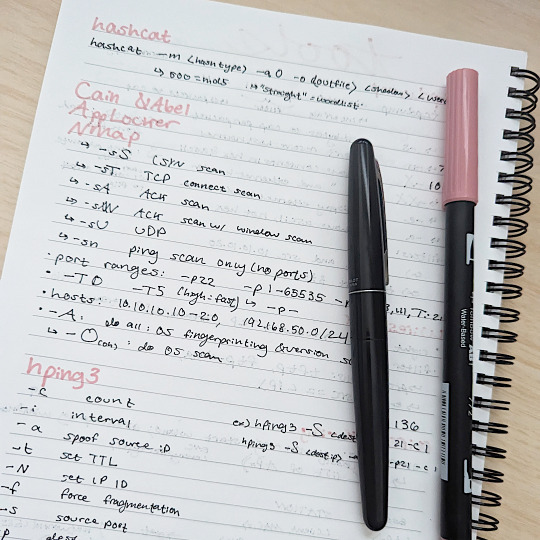 hashcat
hashcat -m <hash type> -a 0 -o <outfile> <hashes>
↳ 500 = md5 ↳ "straight" = wordlist
Cain & Abel
AppLocker
Nmap
↳ -sS (SYN scan
↳ -sT TCP connect scan
↳ -sA ACK scan
↳ -sW ACK scan w/ window scan
↳ -sU UDP
↳ -sn ping scan only (no ports)
• port ranges: -p22 -p 1-65535
• -T0 -T5 (high: fast) ↳ -p-
• hosts: 10.10.10.10-20, 192.168.50.0/24
• -A: do all: OS fingerprinting & version
↳ -O : do OS scan
hping3
-c count
-i interval
-a spoof source ip
-t set TTL
-N set IP ID
-f force fragmentation
-s source port
ex) hping3 -S 136
hping3 -S <dest ip> -p21 -c 1
Water Based